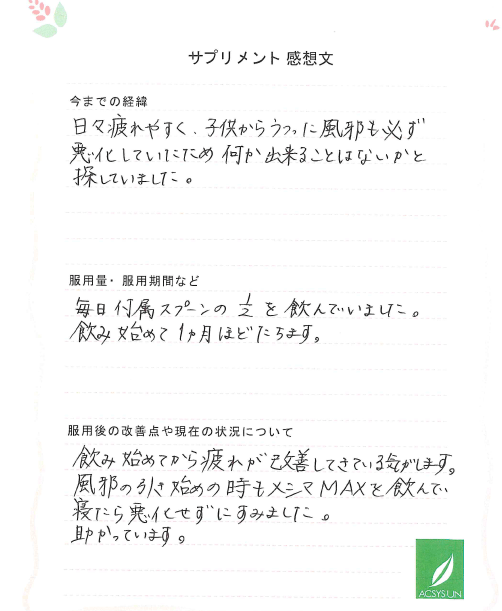 サプリメント 感想文
今までの経緯
日々疲れやすく、子供からうつった風邪も必ず
悪化していたため 何か出来ることはないかと
探していました。
服用量・服用期間など
毎日付属スプーンの 1/2 を飲んでいました。
飲み始めて 1ヶ月ほどたちます。
服用後の改善点や現在の状況について
飲み始めてから疲れが改善してきている気がします。
風邪の引き始めの時もメシマMAXを飲んで
寝たら悪化せずにすみました。
助かっています。
ACSYSUN